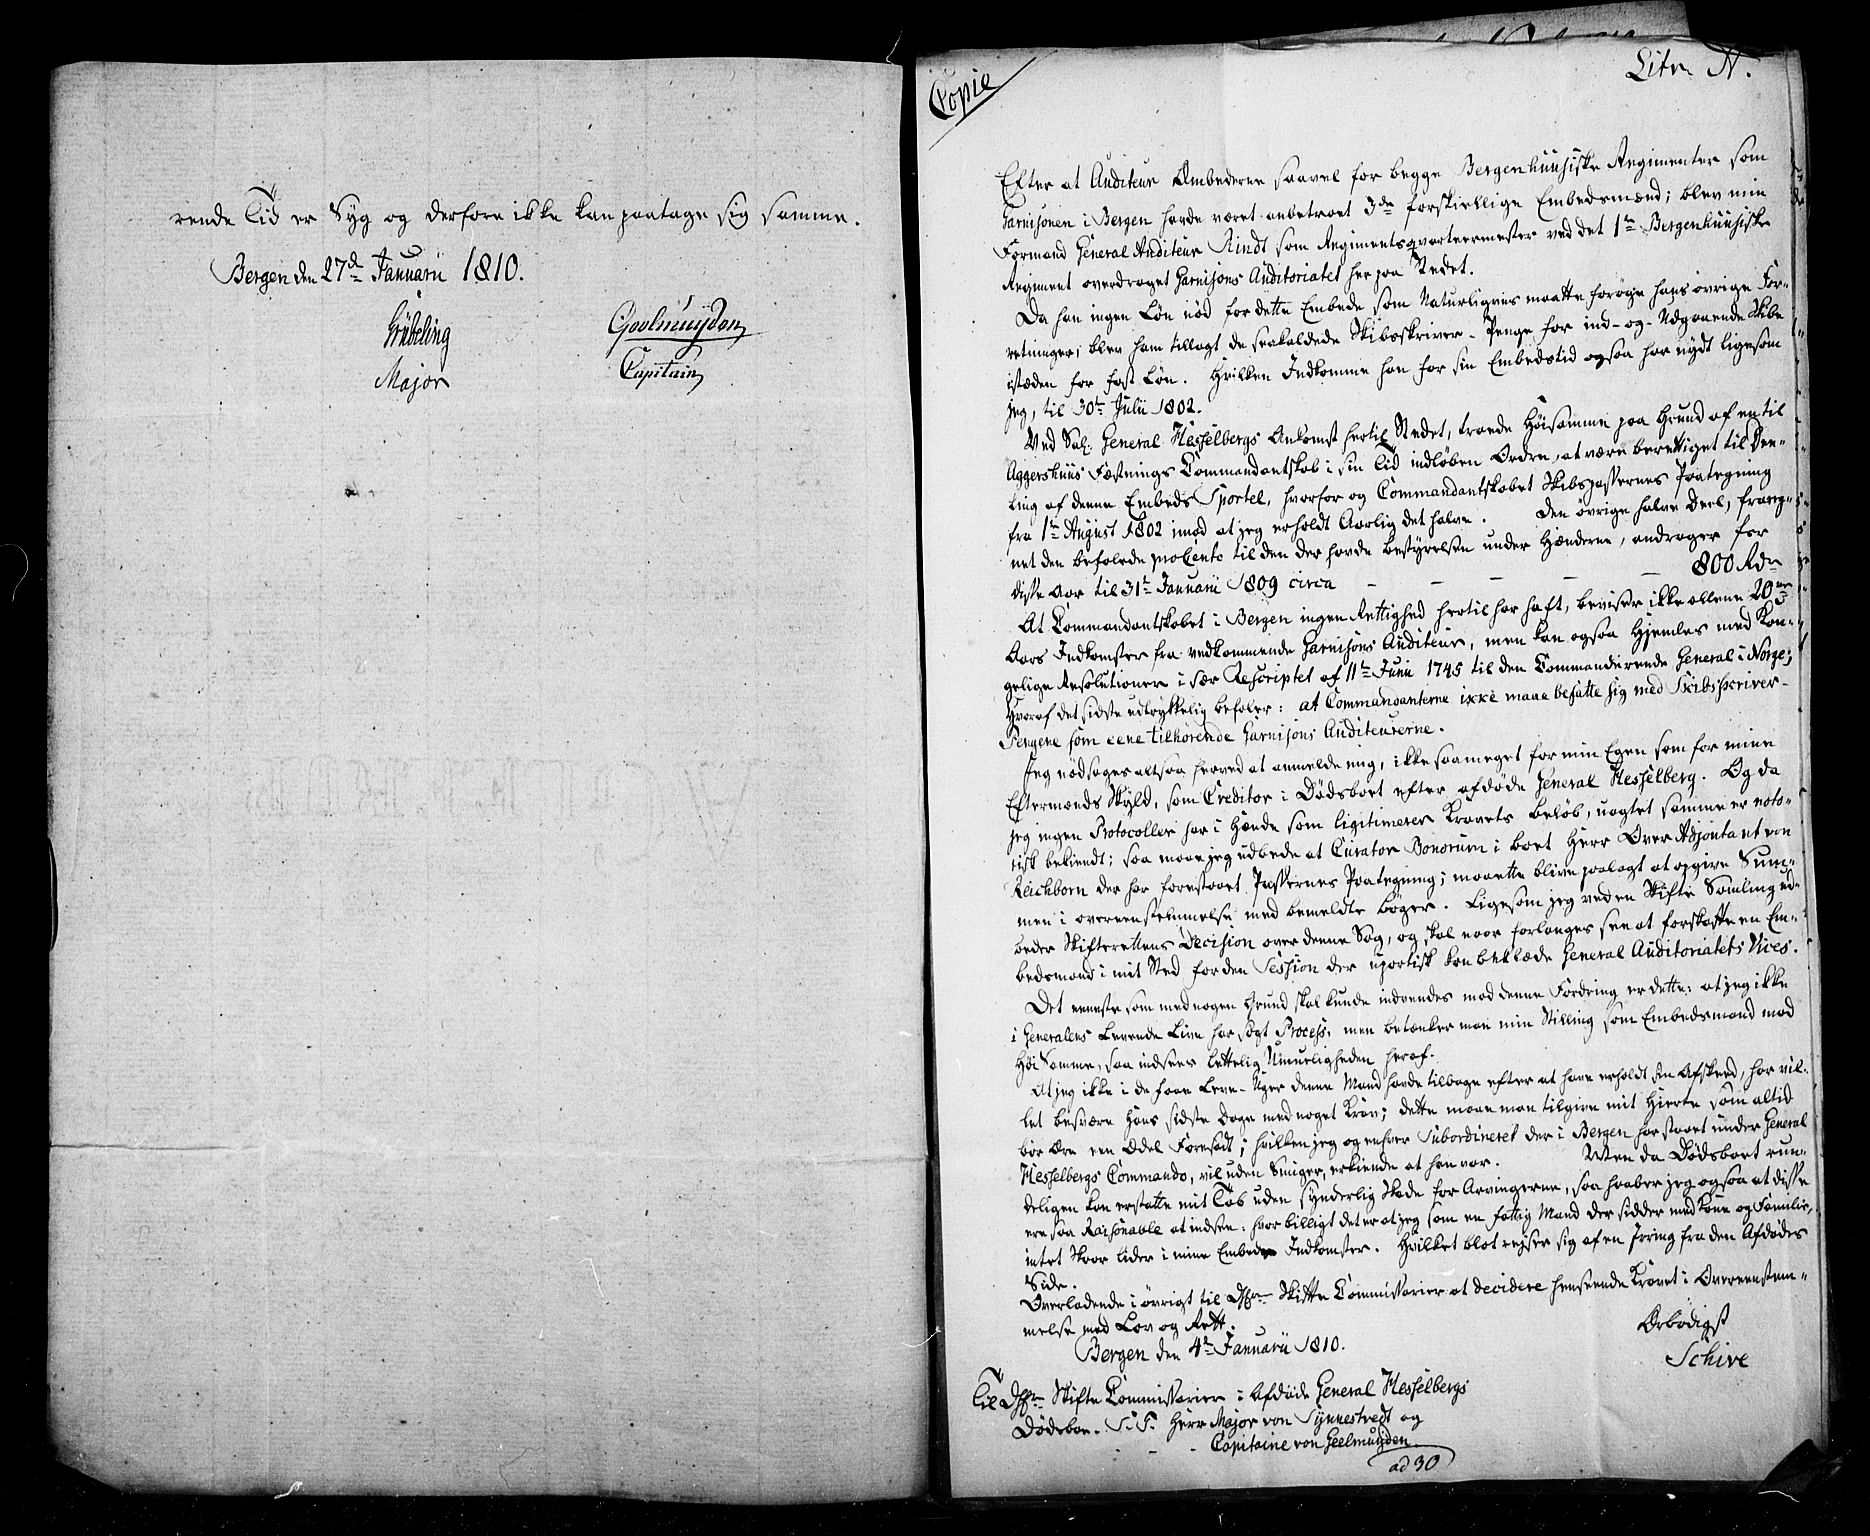 rende Tid er Syg og derfore ikke kan paatage sig samme.
Bergen den 27de Januarii 1810.
Grübeling
Major
Geelmuyden
Capitain
Copie
Litr. N.
Efter at Auditeur Embederne saavel for begge Bergenhuusiske Regimenter som
Garnisonen i Bergen havde været anbetroet 3de forskiellige Embedsmænd; blev min
Formand General Auditeur Rindt som Regimentsqvarteermester ved det 1te Bergenhuusiske
Regiment overdraget Garnisons Auditoriatet her paa Stedet.
Da han ingen Løn nød for dette Embede som Naturligviis maatte forøge hans øvrige For-
retninger; blev ham tillagt de saakaldede Skibsskriver-Penge for ind- og Udgaaende Skibe
istæden for fast Løn. Hvilken Indkomme han for sin Embedstid ogsaa har nydt ligesom
jeg, til 30te Julii 1802.
Ved Sal. General Hesselbergs Ankomst hertil Stedet, troede Høisamme paa Grund af en til
Aggershuus Fæstnings Commandantskab i sin Tid indløben Ordre, at være berettiget til Dee-
ling af denne Embeds Sportel, hvorfor og Commandantskabet Skibspassernes Paategning
fra 1te August 1802 imod at jeg erholdt Aarlig det halve. Den øvrige halve Deel, frareg-
net den befalede proCento til den der havde bestyrelsen under Hænderne, andrager for
disse Aar til 31te Januarii 1809 circa - - - - - 800 Rdr
At Commandantskabet i Bergen ingen Rettighed hertil har haft, beviser ikke allene 20
Aars Indkomster fra vedkommende Garnisons Auditeur, men kan ogsaa Hjemles med Kon-
gelige Resolutioner i sær Rescriptet af 11te Junii 1745 til den Commanderende General i Norge;
Hvoraf det sidste udtrykkelig befaler: at Commandanterne ikke maae befatte sig med Skibsskriver-
Pengene som eene tilhørende Garnisons Auditeurerne.
Jeg nødsages altsaa herved at anmelde mig, ikke saameget for min Egen som for mine
Eftermænds Skyld, som Creditor i Dødsboet efter afdøde General Hesselberg. Og da
jeg ingen Protocoller har i Hænde som ligitimerer Kravets Beløb, uagtet samme er noto-
risk bekiendt; saa maae jeg udbede at Curator Bonorum i boet Herr Over Adjutant von
Reichborn der har forestaaet Passernes Paategning; maatte blive paalagt at opgive Sum-
men i overeenstemmelse med bemeldte bøger. Ligesom jeg ved en Skifte Samling ud-
beder Skifterettens Decision over denne Sag, og skal naar forlanges see at forskaffe en Em-
bedsmand i mit Sted for den Session der upartisk kan beklæde General Auditoriatets Vices.
Det eeneste som med nogen Grund skal kunde indvendes mod denne Fordring er dette: at jeg ikke
i Generalens Levende Live har søgt Process, men betænker man min Stilling som Embedsmand mod
Høi Samme, saa indsees lettelig Umueligheden heraf.
At jeg ikke i de faae Leve-Uger denne Mand havde tilbage efter at have erholdt sin Afskeed, har vil-
let besvære Hans sidste Dage med noget Krav; dette maae man tilgive mit Hierte som altid
bør Ære een Ædel Foresadt; hvilken jeg og enhver Subordineret der i Bergen har staaet under General
Hesselbergs Commando, vil uden Smiger, erkiende at han var. Men da Dødsboet run-
deligen kan erstatte mit Tab uden synderlig Skade for Arvingerne, saa haaber jeg ogsaa at disse
ere saa Raisonable at indsee: hvor billigt det er at jeg som en fattig Mand der sidder med Kone og Familie,
intet Skaar lider i mine Embeds Indkomster. Hvilket blot rejser sig af en Irring fra den Afdødes
Side.
Overladende i øvrigt til Dhrr Skifte Commissarier at decidere henseende Kravet i Overeenstem-
melse med Lov og Rett.
Bergen den 4de Januarii 1810.
Ærbødigst
Schive
Til Dhrr Skifte Commissarier i Afdøde General Hesselbergs
Dødsboe. S.T. Herr Major von Synnestvedt og
- - - Capitaine von Geelmuyden.
ad 30